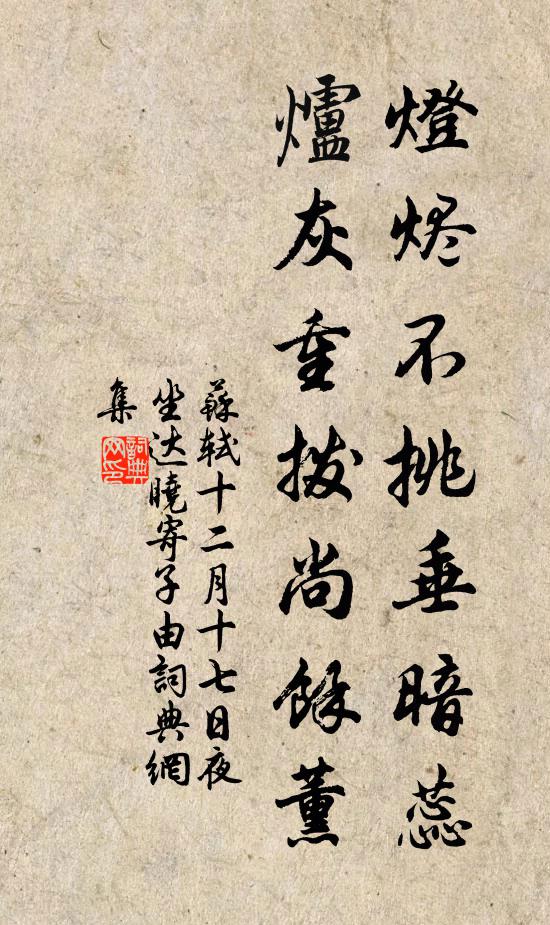 燈烬不挑垂暗蕊
爐灰重拨尚餘薰
蘇軾十二月十七日夜
坐达曉寄子由詞典網
集
詞典网印